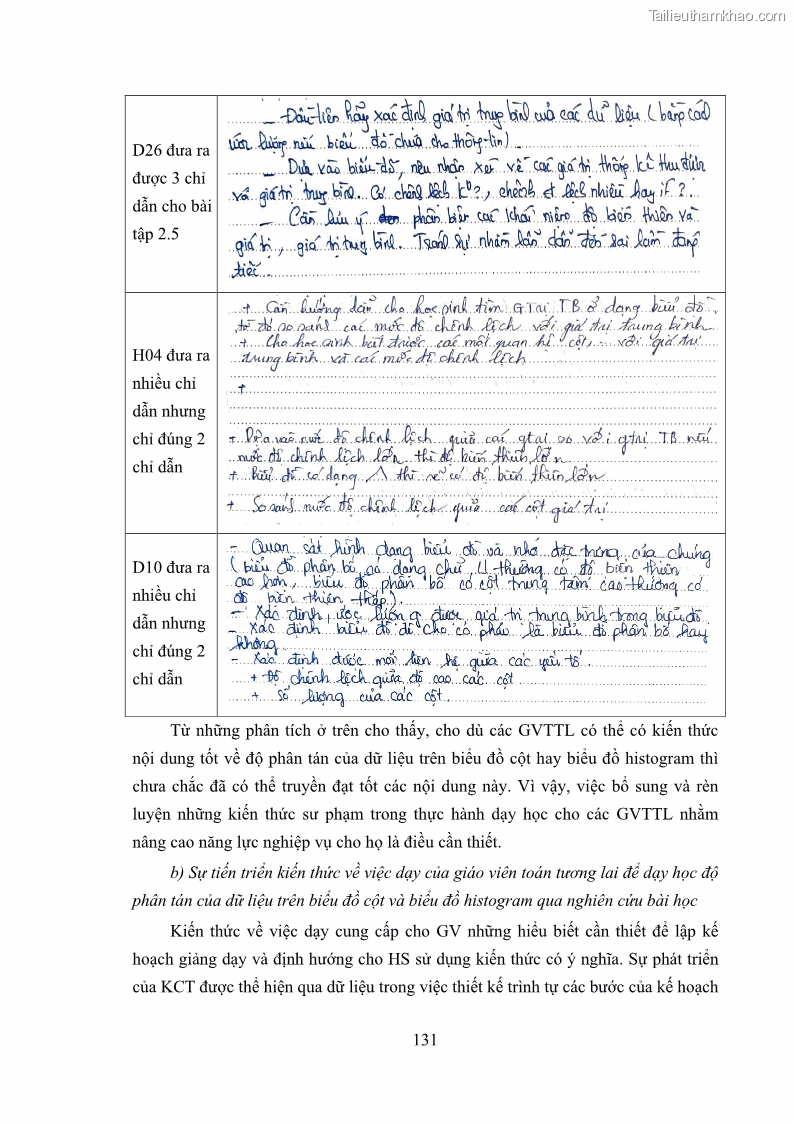 Tailieuthamkhao.com
D26 đưa ra
được 3 chỉ
dẫn cho bài
tập 2.5
– Đầu tiên hãy xác định giá trị trung bình của các dữ liệu (bằng cách
ước lượng nếu biểu đồ chưa cho thông tin).
– Dựa vào biểu đồ, nêu nhận xét về các giá trị thống kê thu được
và giá trị trung bình. Có chênh lệch k°?, chênh lệch nhiều hay ít?
– Cần lưu ý phân biệt các khái niệm độ biến thiên và
giá trị, giá trị trung bình. Tránh sự nhầm lẫn dẫn đến sai lầm đáng
tiếc.
H04 đưa ra
nhiều chỉ
dẫn nhưng
chỉ đúng 2
chỉ dẫn
+ Cần hướng dẫn cho học sinh tìm GTrị TB ở dạng biểu đồ,
từ đó so sánh các mức độ chênh lệch với giá trị trung bình
+ Cho học sinh biết được các mối quan hệ cột, với giá trị
trung bình và các mức độ chênh lệch
+
+ Dựa vào mức độ chênh lệch giữa các gtrị so với gtrị TB nếu
mức độ chênh lệch lớn thì độ biến thiên lớn
+ Biểu đồ có dạng Λ thì sẽ có độ biến thiên lớn
+ So sánh mức độ chênh lệch giữa các cột giá trị
D10 đưa ra
nhiều chỉ
dẫn nhưng
chỉ đúng 2
chỉ dẫn
– Quan sát hình dạng biểu đồ và nhớ đặc trưng của chúng
(biểu đồ phân bố có dạng chữ U thường có độ biến thiên
cao hơn, biểu đồ phân bố có cột trung tâm cao thường có
độ biến thiên thấp).
– Xác định, ước lượng được giá trị trung bình trong biểu đồ
– Xác định biểu đồ đề cho có phải là biểu đồ phân bố hay
không
– Xác định được mối liên hệ giữa các yếu tố.
+ Độ chênh lệch giữa độ cao các cột
+ Số lượng của các cột.
Từ những phân tích ở trên cho thấy, cho dù các GVTTL có thể có kiến thức
nội dung tốt về độ phân tán của dữ liệu trên biểu đồ cột hay biểu đồ histogram thì
chưa chắc đã có thể truyền đạt tốt các nội dung này. Vì vậy, việc bổ sung và rèn
luyện những kiến thức sư phạm trong thực hành dạy học cho các GVTTL nhằm
nâng cao năng lực nghiệp vụ cho họ là điều cần thiết.
b) Sự tiến triển kiến thức về việc dạy của giáo viên toán tương lai để dạy học độ
phân tán của dữ liệu trên biểu đồ cột và biểu đồ histogram qua nghiên cứu bài học
Kiến thức về việc dạy cung cấp cho GV những hiểu biết cần thiết để lập kế
hoạch giảng dạy và định hướng cho HS sử dụng kiến thức có ý nghĩa. Sự phát triển
của KCT được thể hiện qua dữ liệu trong việc thiết kế trình tự các bước của kế hoạch
131